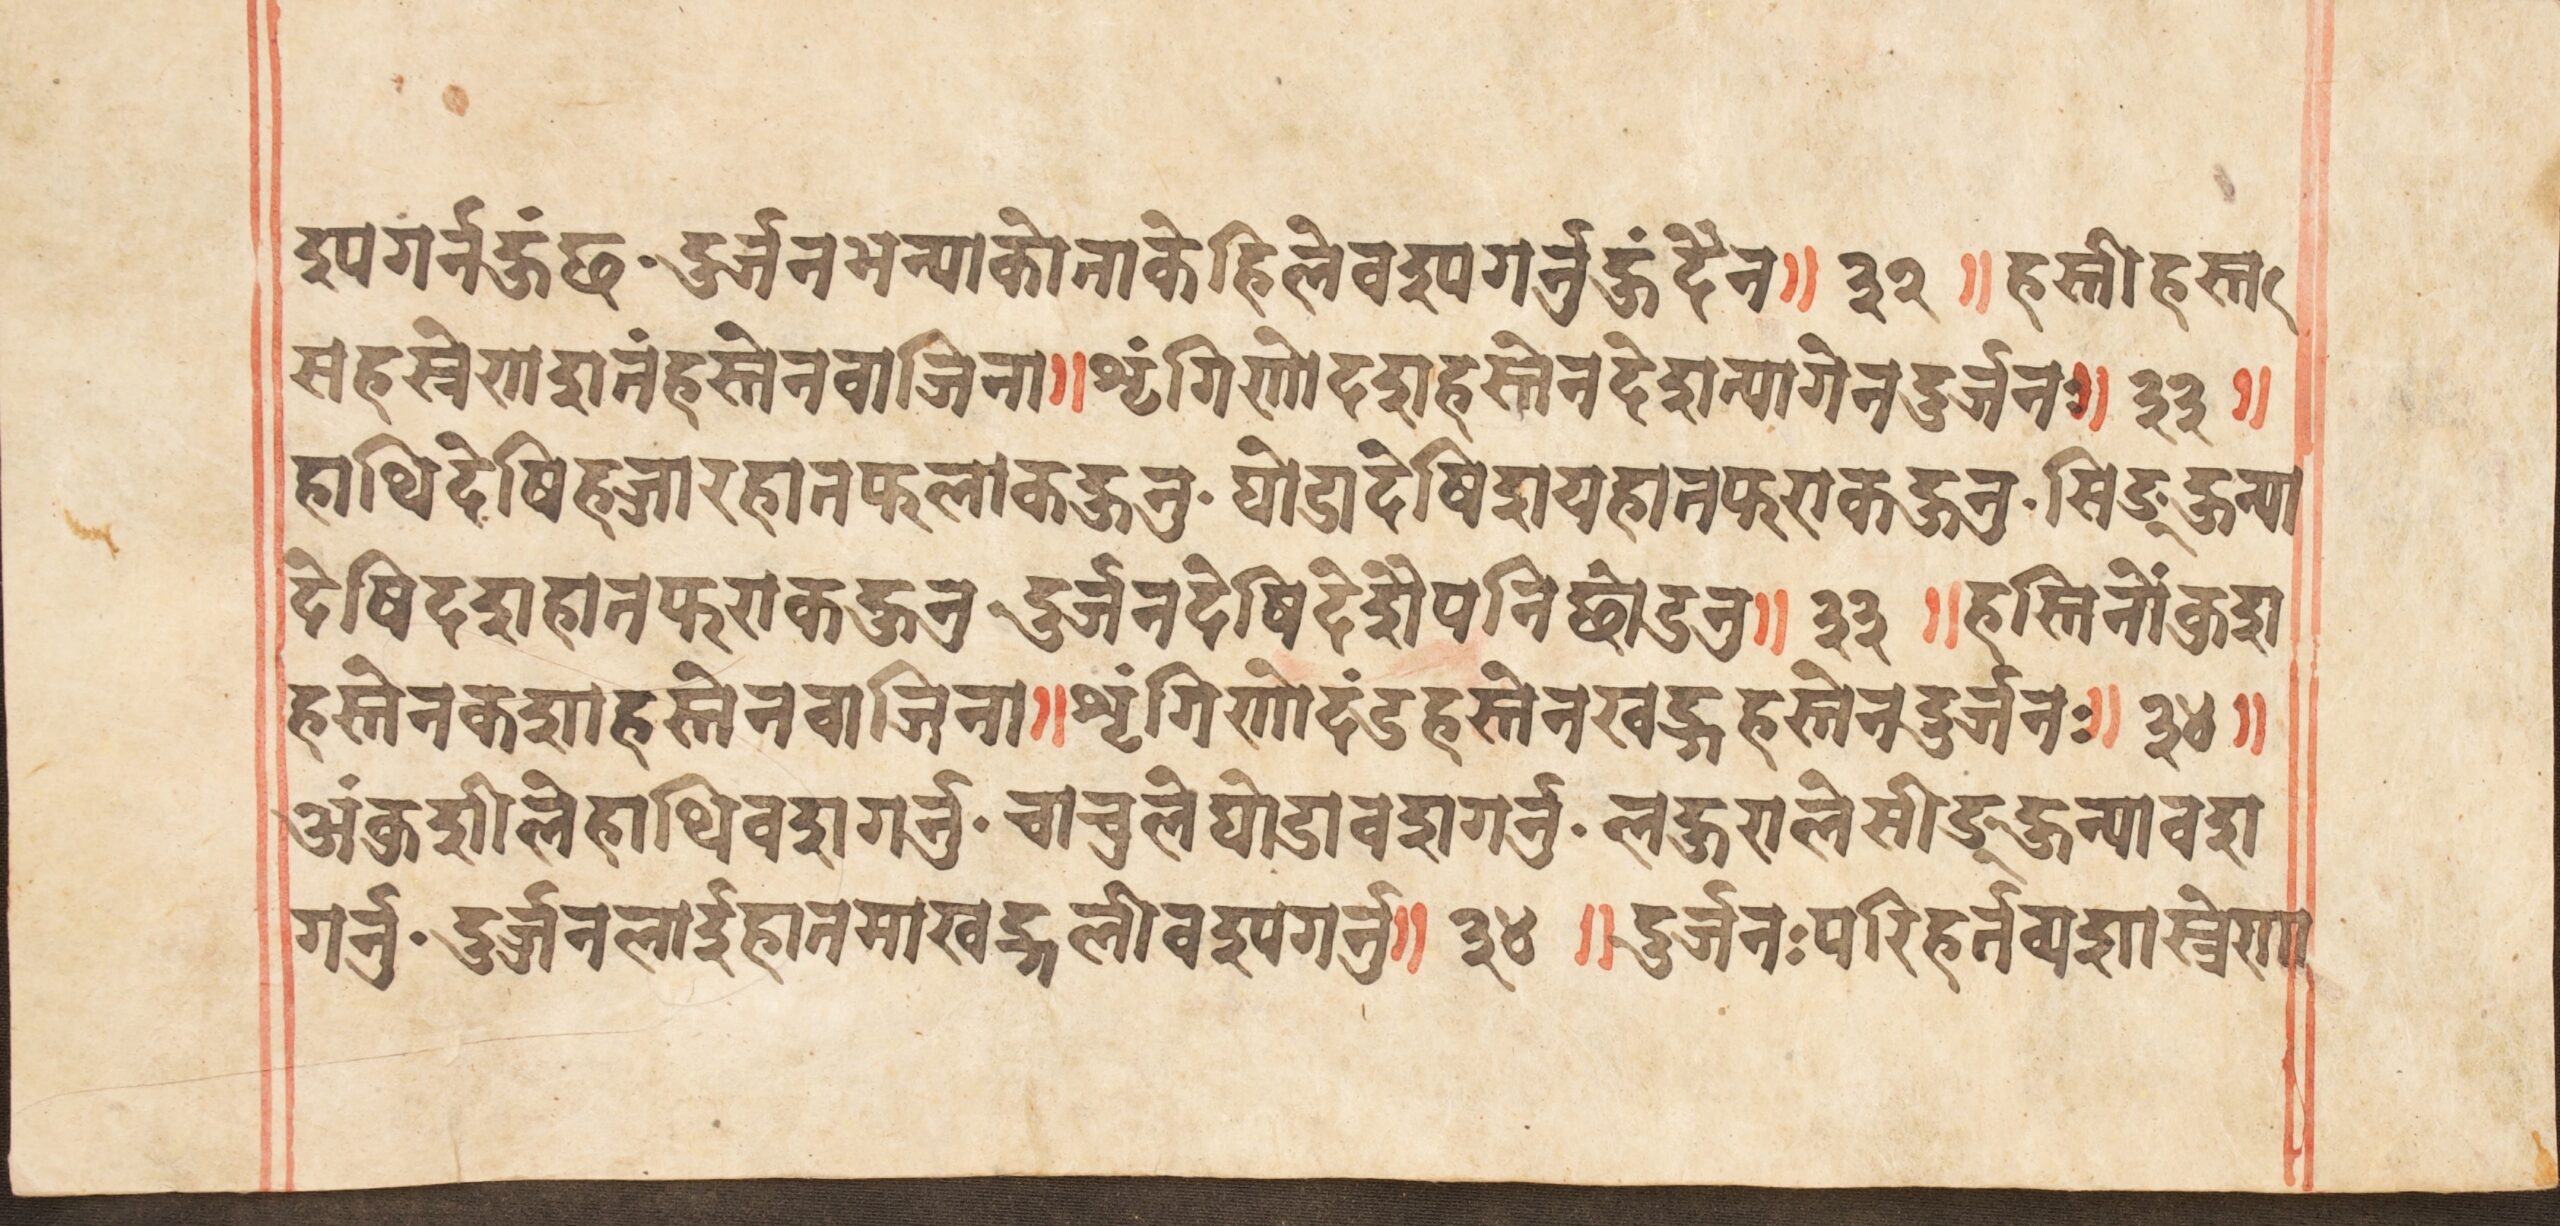 श्यगर्नहुंछ· दुर्जनभन्याकोताकेहिलेवश्यगर्नुहुंदैन॥ ३२ ॥ हस्तीहस्त
सहस्त्रेणशतंहस्तेनवाजिना॥ शृंगिणोदशहस्तेनदेशत्यागेनदुर्जनः॥ ३३ ॥
हाथिदेषिहजारहातफलाकहुनु· घोडादेषिशयहातफराकहुनु· सिङ्हुन्या
देषिदशहातफराकहुनु· दुर्जनदेषिदेशैपनिछोडनु॥ ३३ ॥ हस्तिनोंकुश
हस्तेनकशाहस्तेनवाजिना॥ शृंगिणोदंडहस्तेनखड्गहस्तेनदुर्जनः॥ ३४ ॥
अंकुशीलेहाथिवशगर्नु· चावुलेघोडावशगर्नु· लहुरालेसीङ्हुन्यावश
गर्नु· दुर्जनलाईहातमाखड्गलीवश्यगर्नु॥ ३४ ॥ दुर्जनःपरिहर्तव्यशास्त्रेणा